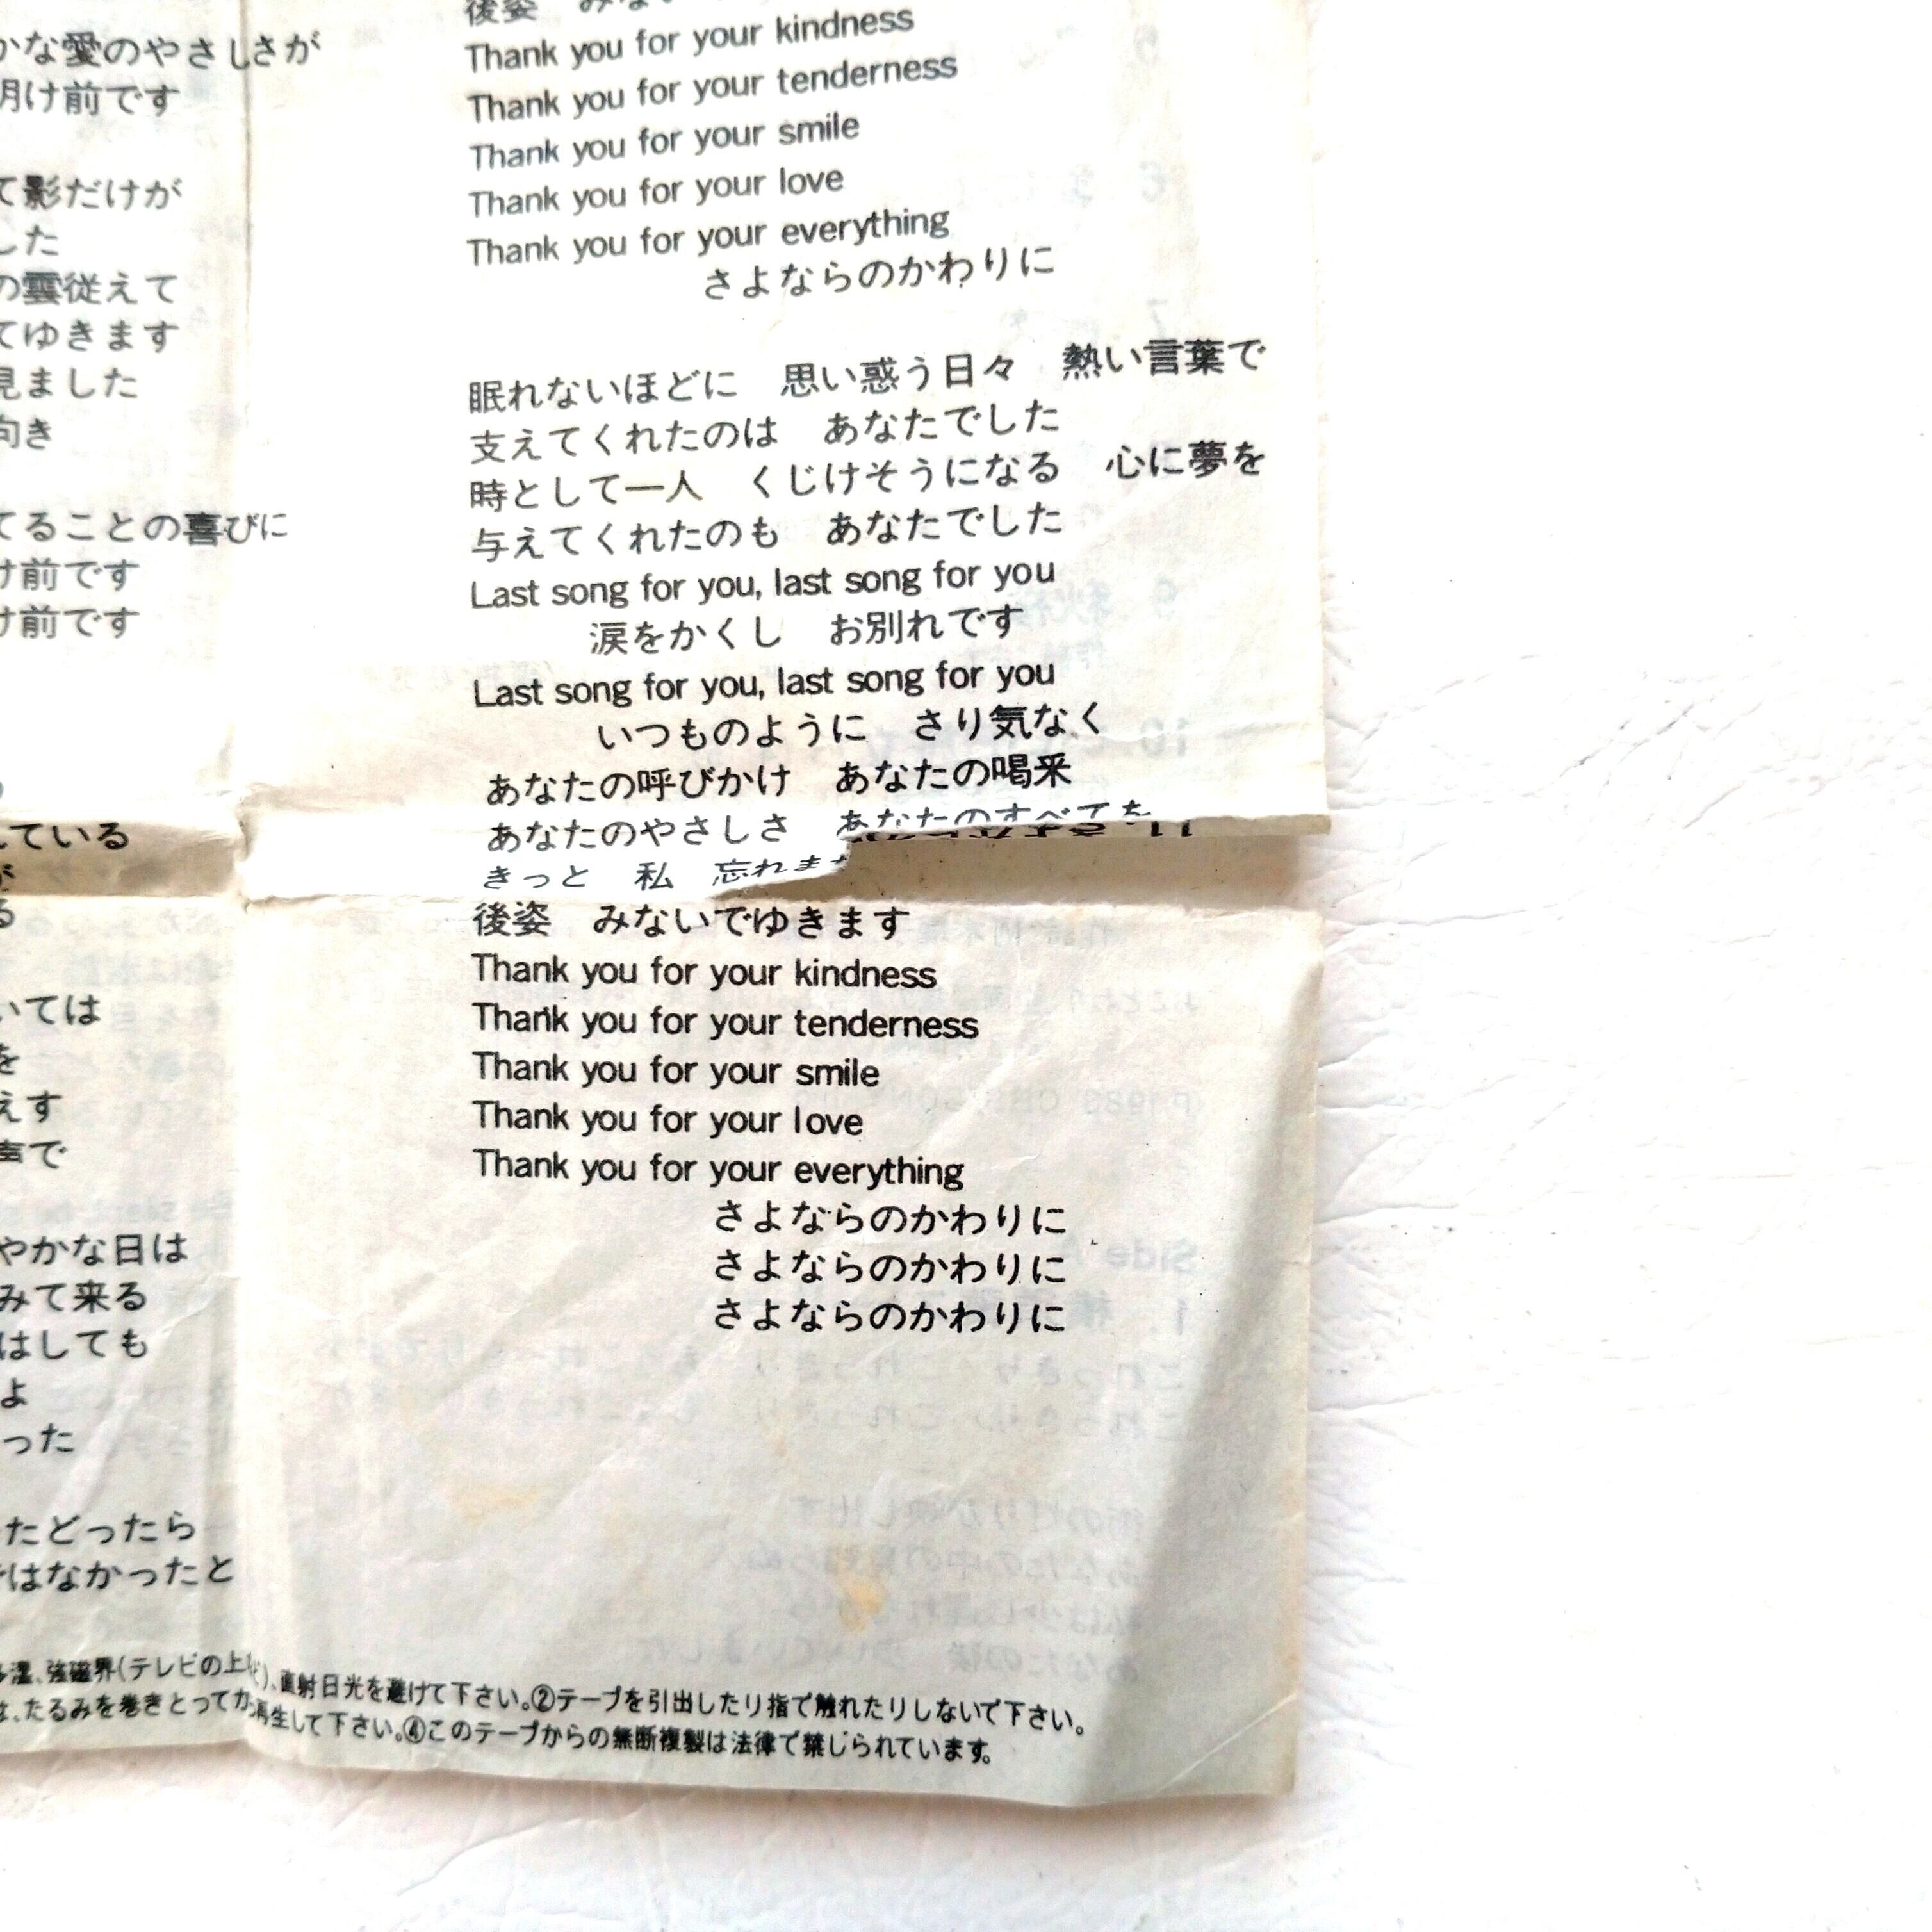 かな愛のやさしさが
明け前です
て影だけが
した
の雲従えて
てゆきます
見ました
向き
てることの喜びに
け前です
け前です
ている
が
る
いては
を
えす
声で
やかな日は
みて来る
はしても
よ
った
たどったら
はなかったと
後姿　みない
Thank you for your kindness
Thank you for your tenderness
Thank you for your smile
Thank you for your love
Thank you for your everything
さよならのかわりに
眠れないほどに　思い惑う日々　熱い言葉で
支えてくれたのは　あなたでした
時として一人　くじけそうになる　心に夢を
与えてくれたのも　あなたでした
Last song for you, last song for you
涙をかくし　お別れです
Last song for you, last song for you
いつものように　さり気なく
あなたの呼びかけ　あなたの喝采
あなたのやさしさ　あなたのすべてを
きっと　私　忘れま
後姿　みないでゆきます
Thank you for your kindness
Thank you for your tenderness
Thank you for your smile
Thank you for your love
Thank you for your everything
さよならのかわりに
さよならのかわりに
さよならのかわりに
多湿、強磁界(テレビの上など)、直射日光を避けて下さい。②テープを引出したり指で触れたりしないで下さい。
は、たるみを巻きとってから再生して下さい。④このテープからの無断複製は法律で禁じられています。